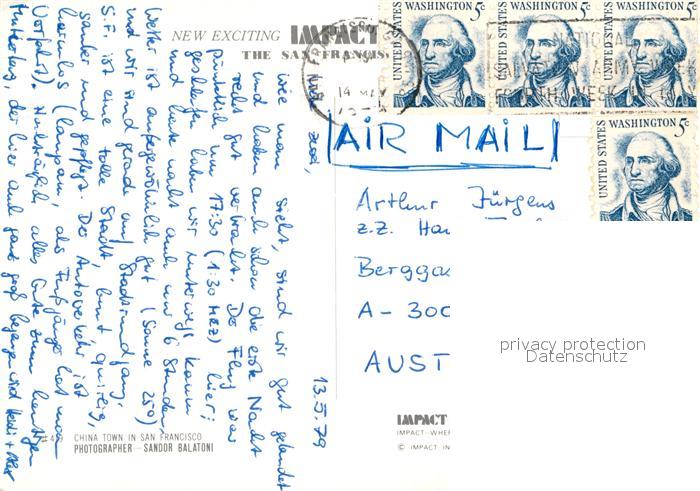 NEW EXCITING IMPACT
THE SAN FRANCIS
UNITED STATES WASHINGTON 5c
UNITED STATES WASHINGTON 5c
UNITED STATES WASHINGTON 5c
UNITED STATES WASHINGTON 5c
14 MAY
AIR MAIL
Arthur Jürgens
z.Z. Ha
Bergga
A - 300
AUST
privacy protection
Datenschutz
13.5.79
wie man sieht, sind wir gut gelandet
und haben auch schon die erste Nacht
recht gut verbracht. Der Flug war
pünktlich um 17:30 (1:30 MEZ) hier;
geschlafen haben wir unterwegs kaum
und heute nacht auch nur 6 Stunden,
Wetter ist außergewöhnlich gut (Sonne 25°)
und wir sind gerade auf Stadtrundgang.
S.F. ist eine tolle Stadt, bunt, quirlig,
sauber und gepflegt. Der Autoverkehr ist
harmlos (langsam, als Fußgänger hat man
Vorfahrt). Nachträglich alles Gute zum heutigen
Muttertag, der hier auch ganz groß begangen wird
#449 CHINA TOWN IN SAN FRANCISCO
PHOTOGRAPHER—SANDOR BALATONI
IMPACT
IMPACT—WHER
© IMPACT IN